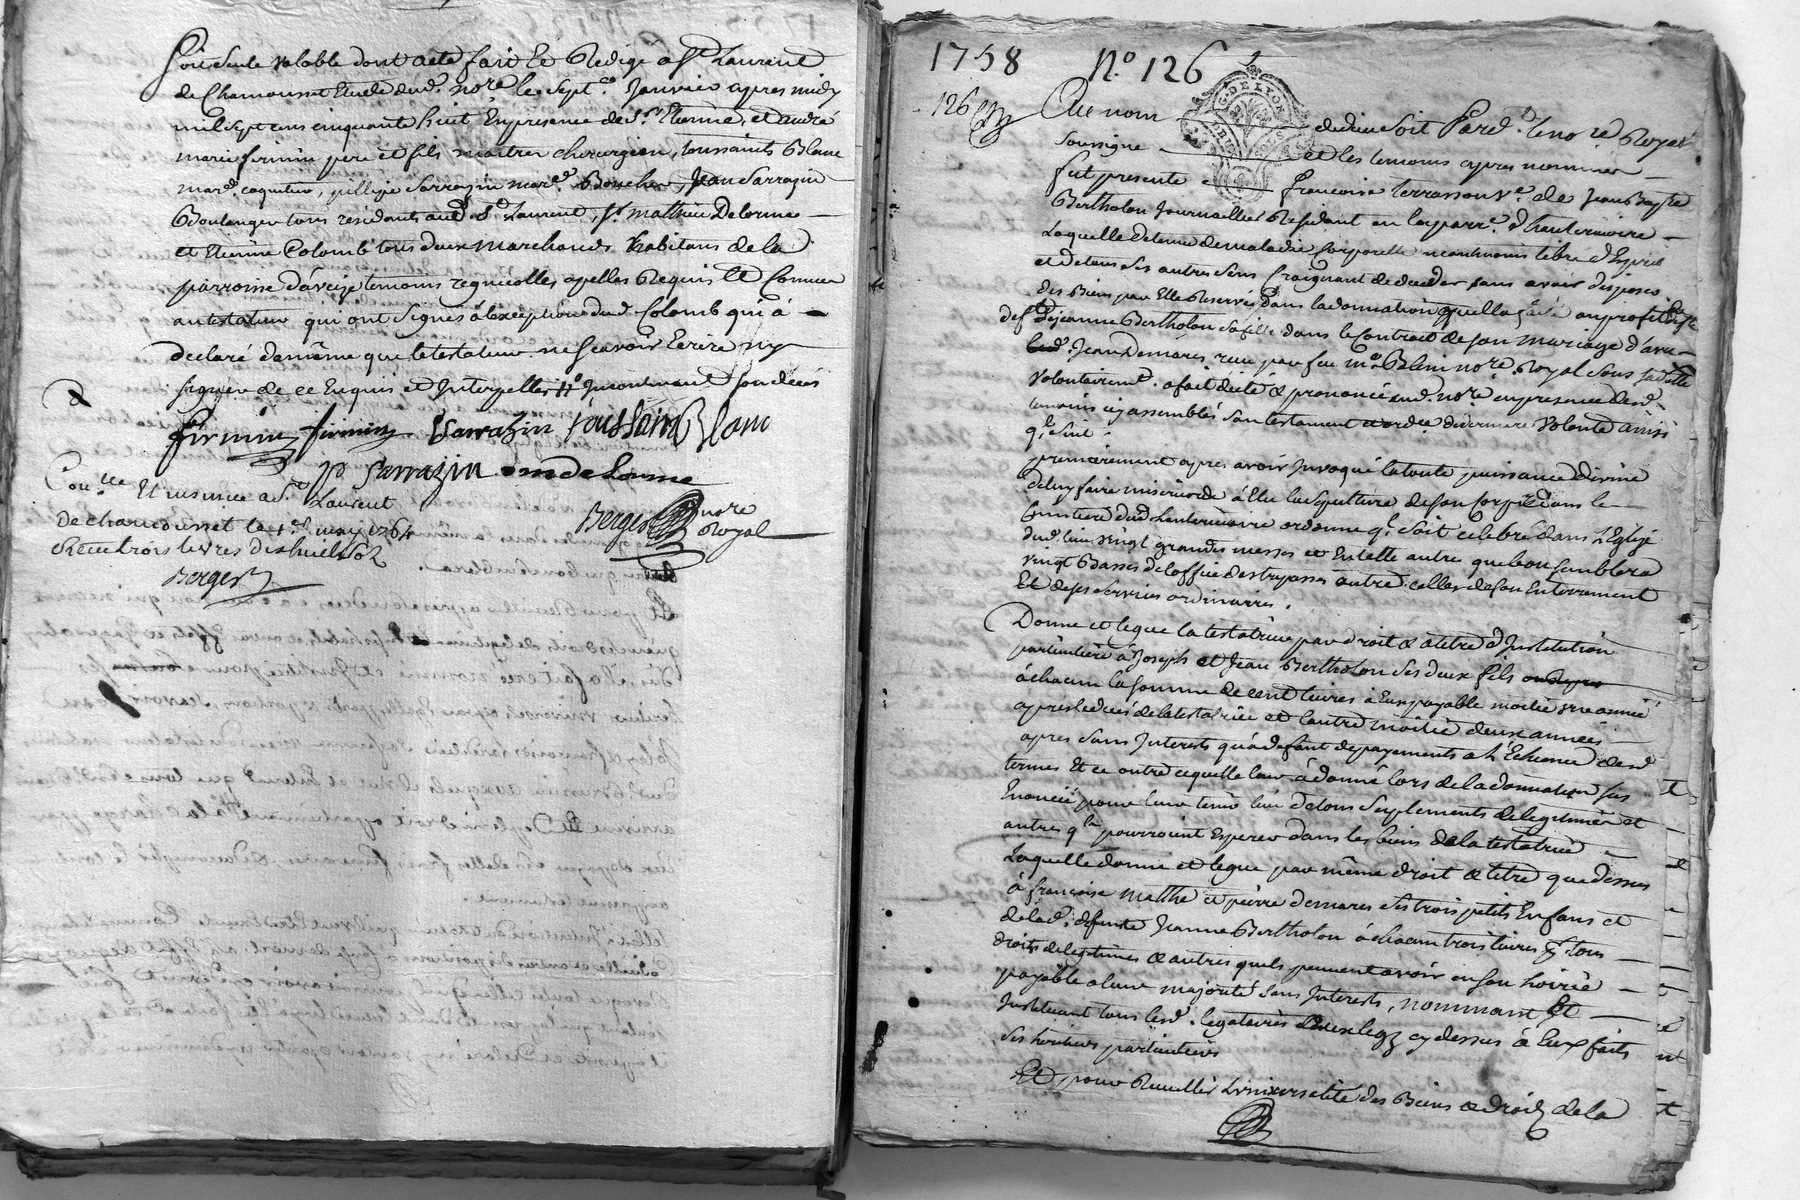 soit seule valable dont acte fait et Redigé a St Laurent
de Chamousset Etude dud. nore le sept. Janvier apres midy
mil sept cens cinquante huit En presence de Sr Etienne, et andré
marie firmin pere et fils maitres chirurgien, toussaints Blanc
mard. coquetier, Sarrazin mard. Boucher, Jean Sarrazin
Boulanger tous residants aud. St Laurent, Sr mathieu Delorme
et Etienne Colomb tous deux marchands habitans de la
parroisse d'aveize temoins regnicolles apelles Requis Et Connus
au testateur qui ont Signés à lexception dud. Colomb qui a
declaré de même que le testateur ne scavoir Ecrire ny
signer de ce Enquis et Interpellés
firmin firmin Sarrazin toussaint Blanc
p Sarrazin m delorme
Berger nore
Royal
Conlle Et insinué a St
Laurent
de chamousset le may 1764
Receu trois livres dix huit sols
Berger
1758 No 126
126
G. DE LYON
Au nom de dieu Soit Pardt. le nore Royal
Soussigné et les temoins apres nommés
fut presente francoise terrasson ve. de Jean Bapte
Bertholon Journallier Residant en la parre. d'hauterivoire
Laquelle detenue de maladie Corporelle neantmoins libre d'Esprit
et de tous ses autres sens Craignant de deceder sans avoir disposé
des Biens par Elle Reservés dans la donnation quelle a faite au profit de
Jeanne Bertholon sa fille dans le Contrait de son mariage d'avec
Jean Demares, recu par feu me Blain nore. Royal Sous sa datte
volontairemt. a fait dicté & prononcé aud. nore en presence desd.
temoins icy assemblés son testament et ordre derniere volonté ainsi
q. Suit.
premierement apres avoir Invoqué la toute puissance divine
de luy faire misericorde à Elu la sepulture de son Corps dans le
Cimetiere dud. hauterivoire ordonne q. soit celebré dans L'Eglise
dud. lieu vingt grandes messes et En telle autre que bon semblera
vingt Basses de l'office des trepassés outre celles de son Enterrement
Et de ses services ordinaires.
Donne et legue la testatrice par droit & a titre d'Institution
particuliere à Joseph et Jean Bertholon ses deux fils
à chacun la somme de cent livres à Eux payable moitié une année
apres le deces de la testatrice et l'autre moitié deux années
apres sans Interests qu'a defaut de payements a L'Echeance desd.
termes Et ce outre ce quelle leur à donné lors de la donnation sus
Enoncée pour leur tenir lieu de tous Suplements de legitimes et
autres q. pourroient Esperer dans les biens de la testatrice
Laquelle donne et legue par même droit & titre que dessus
à francoise Matthe et pierre demares ses trois petits Enfans et
de lad. defunte Jeanne Bertholon à chacun trois livres p. tous
droits de legitimes & autres quels peuvent avoir en son hoirie
payable a leur majorité sans Interests, nommant Et
Instituant tous lesd. legataires cy dessus à Eux faits
ses heritiers particuliers
Et pour Recueillir L'universalité des Biens & droits de la